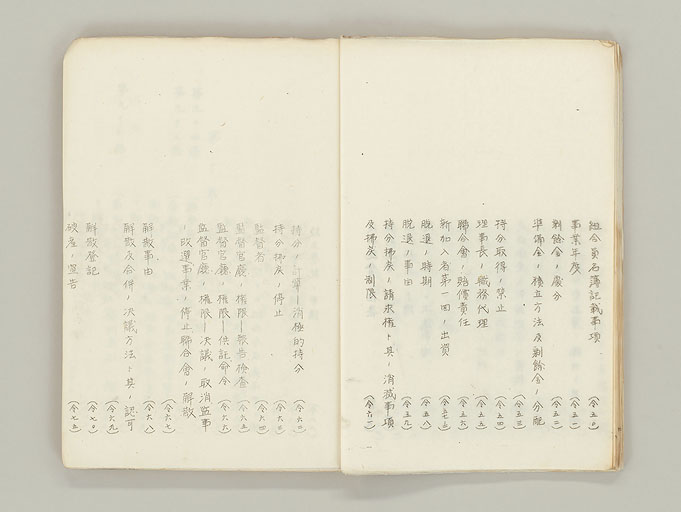 組合員名簿記載事項 (令五〇)
事業年度 (令五一)
剰餘金ノ處分 (令五二)
準備金ノ積立方法及剰餘金ノ分配 (令五三)
持分取得ノ禁止 (令五四)
理事長ノ職務代理 (令五五)
聯合會ノ賠償責任 (令五六)
新加入者第一回ノ出資 (令五七)
脱退ノ時期 (令五八)
脱退ノ事由 (令五九)
持分拂戻ノ請求權ト其ノ消滅事項
及拂戻ノ制限 (令六一)
持分ノ計算—消極的持分 (令六二)
持分拂戻ノ停止 (令六三)
監督者 (令六四)
監督官廳ノ權限—報告檢査 (令六五)
監督官廳ノ權限—供託命令 (令六六)
監督官廳ノ權限—決議ノ取消監事
ノ改選事業ノ停止聯合會ノ解散 (令六七)
解散事由 (令六八)
解散及合併ノ決議方法ト其ノ認可 (令六九)
解散登記 (令七〇)
破産ノ宣告 (令七五)